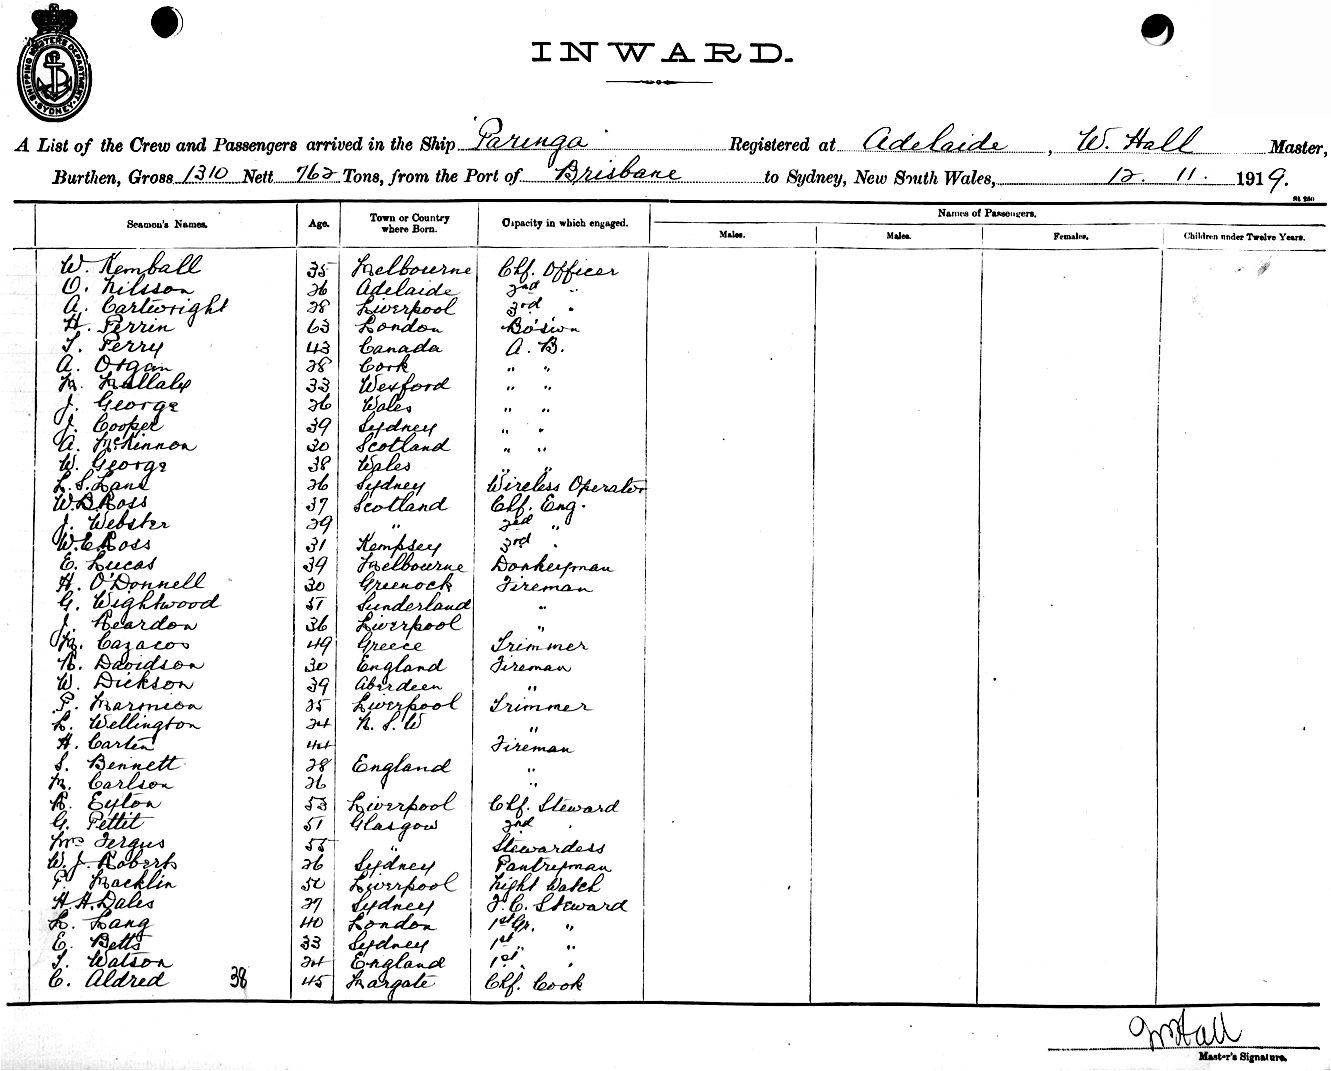 SHIPPING MASTERS DEPARTMENT SYDNEY
INWARD.
A List of the Crew and Passengers arrived in the Ship "Paringa" Registered at Adelaide, W. Hall Master,
Burthen, Gross 1310 Nett 762 Tons, from the Port of Brisbane to Sydney, New South Wales, 12. 11. 1919.
Seamen's Names. Age. Town or Country where Born. Capacity in which engaged. Names of Passengers.
Males. Males. Females. Children under Twelve Years.
W. Kemball 35 Melbourne Chf. Officer
O. Nilsson 26 Adelaide 2nd "
A. Cartwright 28 Liverpool 3rd "
H. Perrin 63 London Bo'swn
T. Perry 43 Canada A. B.
A. Organ 28 Cork " "
M. Mallaly 33 Wexford " "
J. George 26 Wales " "
J. Cooper 39 Sydney " "
A. McKinnon 30 Scotland " "
W. George 38 Wales " "
L. S. Lane 26 Sydney Wireless Operator
W. B. Ross 37 Scotland Chf. Eng.
J. Webster 29 " 2nd "
W. C. Ross 31 Kempsey 3rd "
E. Lucas 39 Melbourne Donkeyman
H. O'Donnell 30 Greenock Fireman
G. Wightwood 51 Sunderland "
J. Reardon 36 Liverpool "
M. Cazacos 49 Greece Trimmer
R. Davidson 30 England Fireman
W. Dickson 39 Aberdeen "
P. Marmion 25 Liverpool Trimmer
L. Wellington 24 N. S. W "
H. Carten 44 Fireman
S. Bennett 28 England "
M. Carlson 26 " "
R. Eyton 53 Liverpool Chf. Steward
G. Pettit 51 Glasgow 2nd "
Mrs Fergus 55 " Stewardess
W. J. Roberts 26 Sydney Pantryman
P. Macklin 50 Liverpool Night Watch
H. H. Dales 27 Sydney F. C. Steward
L. Lang 40 London 1st Gr. "
E. Betts 33 Sydney 1st " "
T. Watson 24 England 1st " "
C. Aldred 38 45 Margate Chf. Cook
W Hall
Master's Signature.